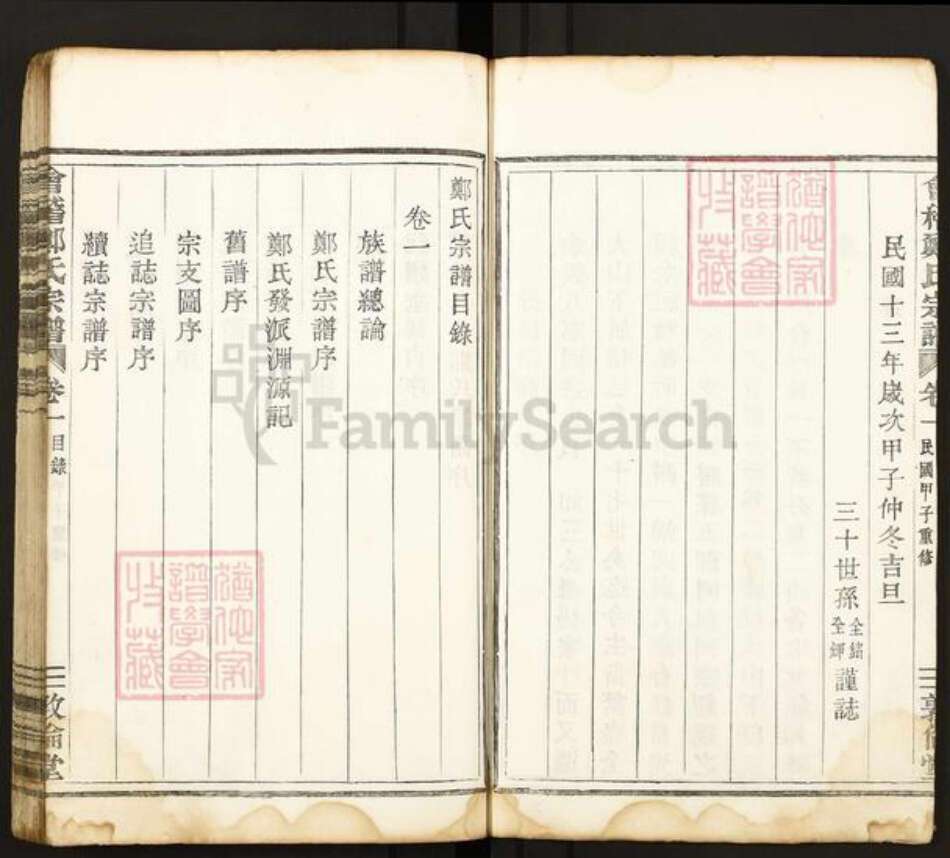 會稽鄭氏宗譜 卷一 民國甲子重修 敦倫堂
民國十三年歲次甲子仲冬吉旦
三十世孫 全銘 全輝 謹誌
鄭氏宗譜目錄
卷一
族譜總論
鄭氏宗譜序
鄭氏發派淵源記
舊譜序
宗支圖序
追誌宗譜序
續誌宗譜序
會稽鄭氏宗譜 卷一 目錄 敦倫堂
FamilySearch